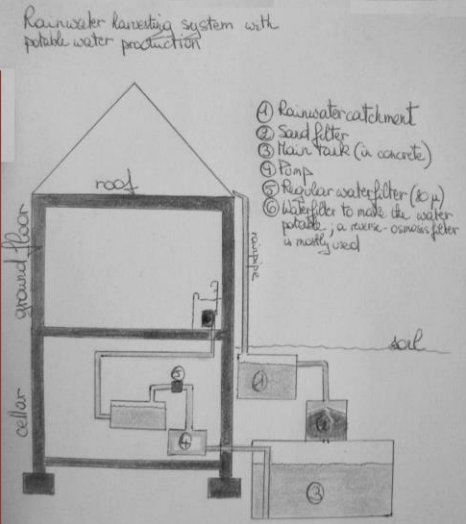 Rainwater harvesting system with
potable water production
① Rainwatercatchment
② Sand filter
③ Main tank (in concrete)
④ Pump
⑤ Regular waterfilter (80 µ)
⑥ Waterfilter to make the water
potable; a reverse-osmosis filter
is mostly used
roof
ground floor
rainpipe
soil
cellar
①
②
③
④
⑤